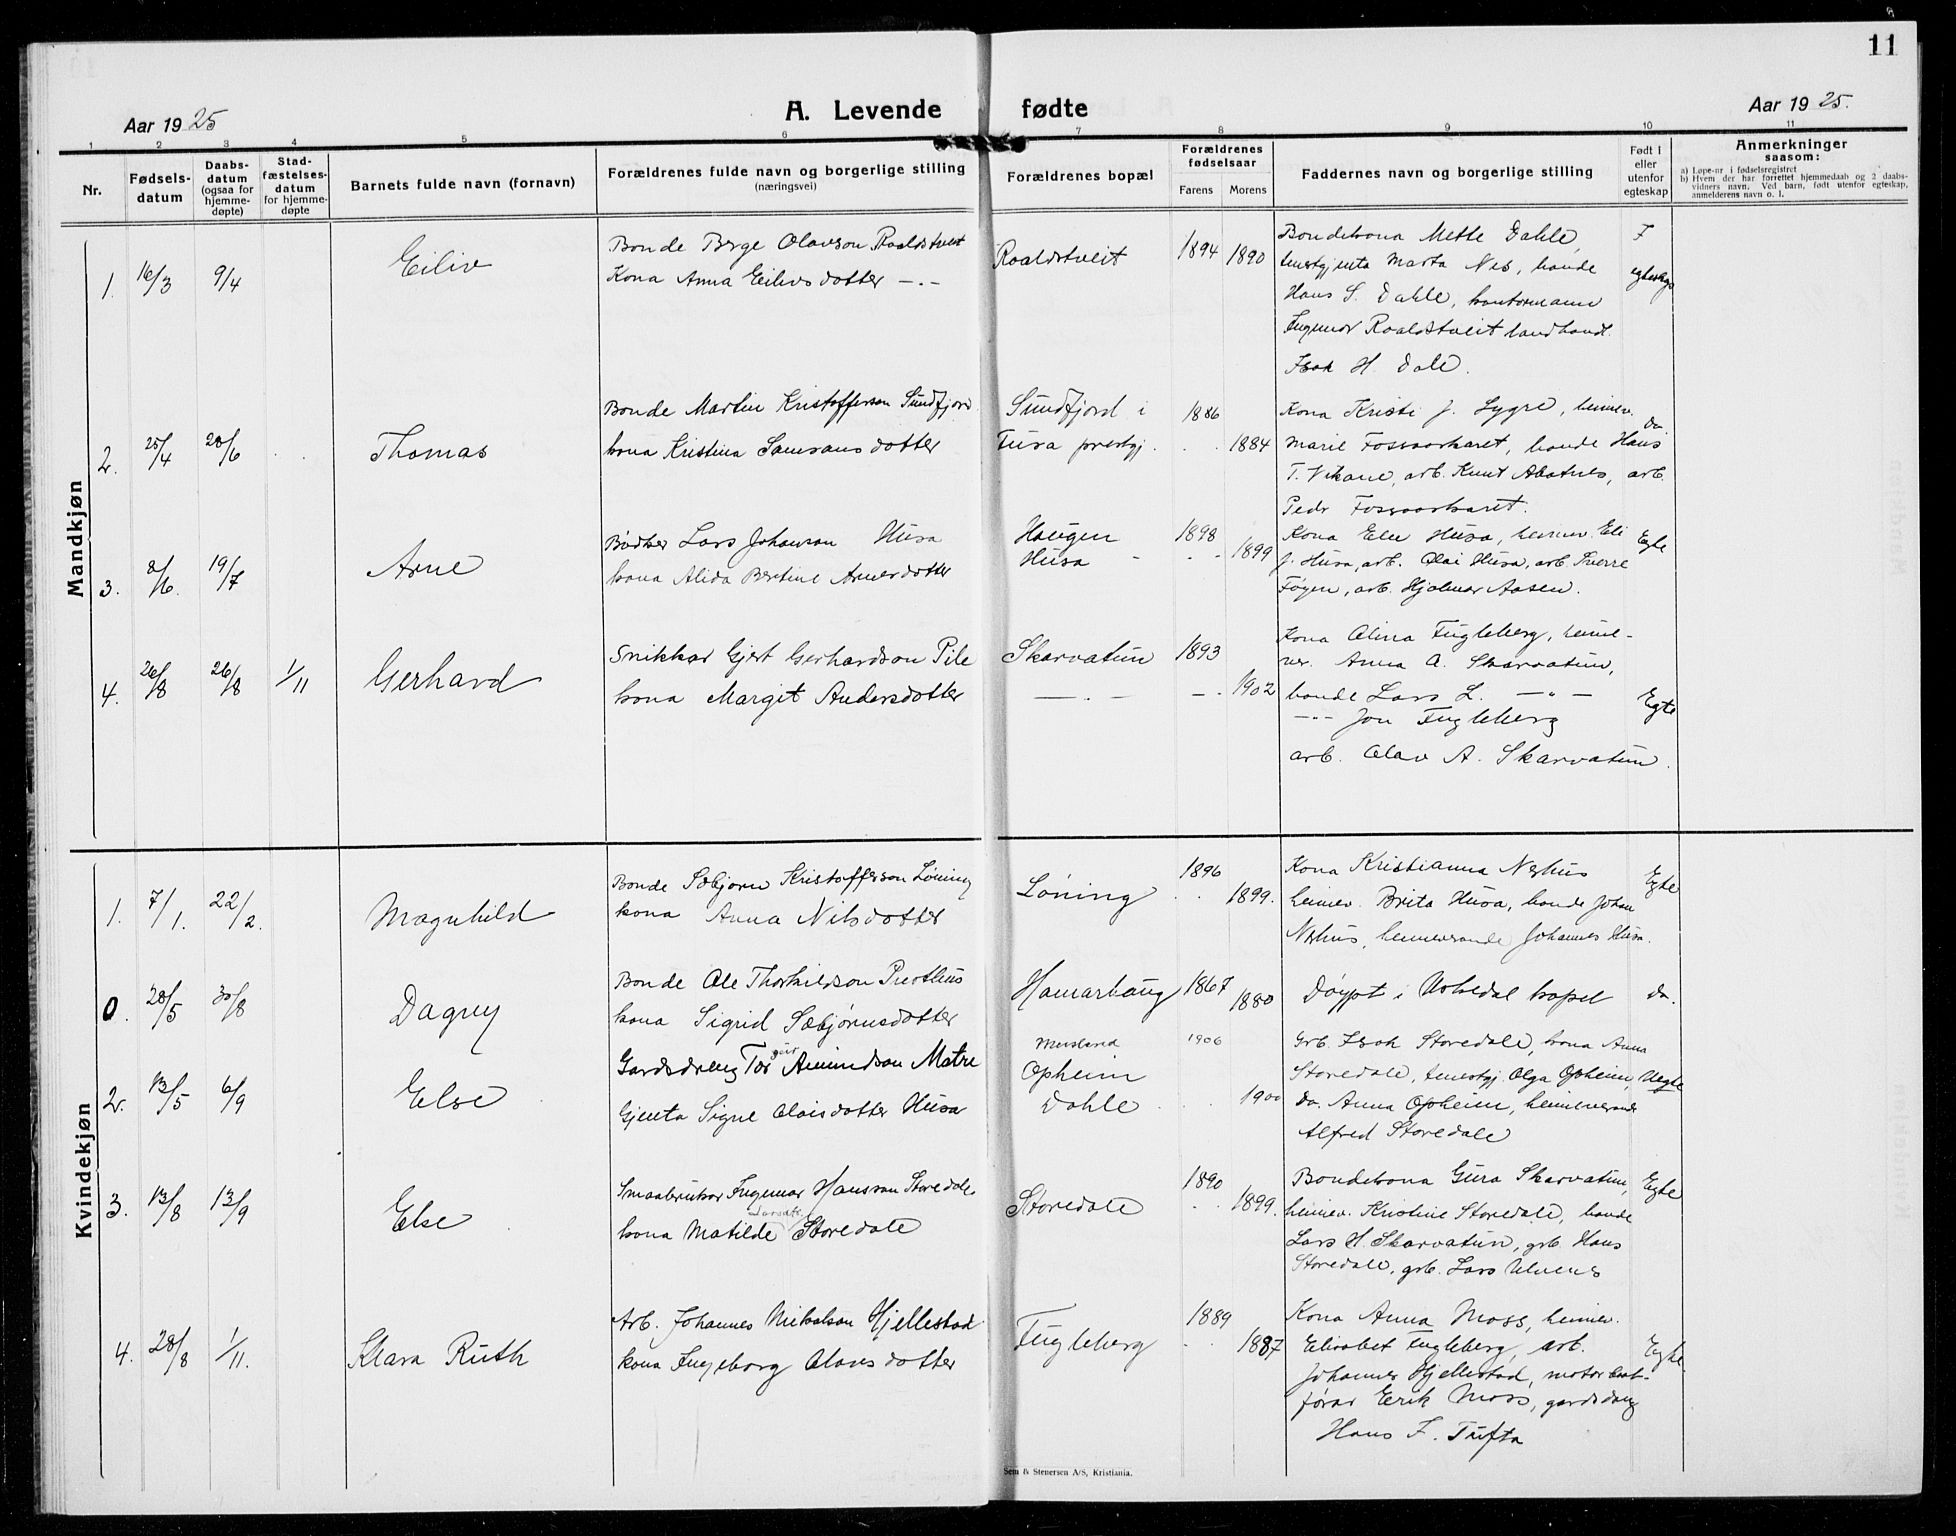 11
Aar 1925
A. Levende fødte
Aar 1925.
1 2 3 4 5 6 7 8 9 10 11
Nr.
Fødsels-
datum
Daabs-
datum
(ogsaa for
hjemme-
døpte)
Stad-
fæstelses-
datum
for hjemme-
døpte
Barnets fulde navn (fornavn)
Forældrenes fulde navn og borgerlige stilling
(næringsvei)
Forældrenes bopæl
Forældrenes
fødselsaar
Farens Morens
Faddernes navn og borgerlige stilling
Født i
eller
utenfor
egteskap
Anmerkninger
saasom:
a) Løpe-nr i fødselsregistret
b) Hvem der har forrettet hjemmedaab og 2 daabs-
vidners navn. Ved barn, født utenfor egteskap,
anmelderens navn o. l.
Mandkjøn
1. 16/3 9/4 Eiliv
Bonde Berge Olavson Roaldstveit
Kona Anna Eilivsdotter -.-
Roaldstveit 1894 1890
Bondekona Mette Dahle,
tenestgjenta Marta Nes, bonde
Hans S. Dahle, kontormann
Ingemar Roaldstveit landhandl.
Isak H. Dale.
I
2. 25/4 28/6 Thomas
Bonde Martin Kristofferson Sundfjord
kona Kristina Samsonsdotter
Sundfjord i
Fusa prestgj.
1886
1884
Kona Kristi J. Lygre, heimev.
Marie Fossaarkaret, bonde Hans
T. Vikane, arb. Knut Abotnes, arb.
Peder Fossaarkaret.
Do
3. 8/6. 19/7 Arne
Bødker Lars Johanson Husa
kona Alida Bertine Arnesdotter
Haugen
Husa
1898
1899
Kona Elen Husa, heimev. Eli
J. Husa, arb. Olai Husa, arb. Sverre
Føyen, arb. Hjalmar Aasen.
Egte
4. 26/8 26/8 1/11 Gerhard
Snikkar Gjert Gerhardson Pile
kona Margit Andersdotter
Skarvatun
1893
1902
Kona Alina Fugleberg, heime-
ver. Anna A. Skarvatun,
bonde Lars L. -"-
-"- Jon Fugleberg
arb. Olav A. Skarvatun.
Egte
Kvindekjøn
1. 7/1. 22/2. Magnhild
Bonde Sæbjørn Kristofferson Løning
kona Anna Nilsdotter
Løning
1896
1899.
Kona Kristianna Nerhus
heimev. Brita Husa, bonde Johan
Nerhus, heimeverande Johannes Husa.
Egte
0. 28/5 30/8 Dagny
Bonde Ole Thorkildson Presthus
kona Sigrid Sæbjørnsdotter
Hamarhaug 1867
1880
Døypt i Uskedal kapel
do.
2. 13/5 6/9 Else
Gardsdreng Torgeir Amundson Matre
Gjenta Signe Olaisdotter Husa
Opheim
Dahle
1906
1900
Grb. Isak Storedale, kona Anna
Storedale, tenestgj. Olga Opheim,
do. Anna Opheim, heimeverande
Alfred Storedale
Uegte
3. 13/8 13/9 Else
Smaabrukar Ingemar Hansson Storedale
kona Matilde Larsdtr. Storedale
Storedale
1890
1899.
Bondekona Gura Skarvatun,
heimev. Kristine Storedale, bonde
Lars H. Skarvatun, grb. Hans
Storedale, grb. Lars Ulvenes
Egte
4. 28/8 1/11. Klara Ruth
Arb. Johannes Nikolson Hjellestad
kona Ingeborg Olavsdotter
Fugleberg
1889
1887
Kona Anna Moss, heimev.
Elisabet Fugleberg, arb.
Johannes Hjellestad, motorbaat-
førar Erik Moss, gardsdreng
Hans F. Tufta
Egte
Sem & Stenersen A/S, Kristiania.